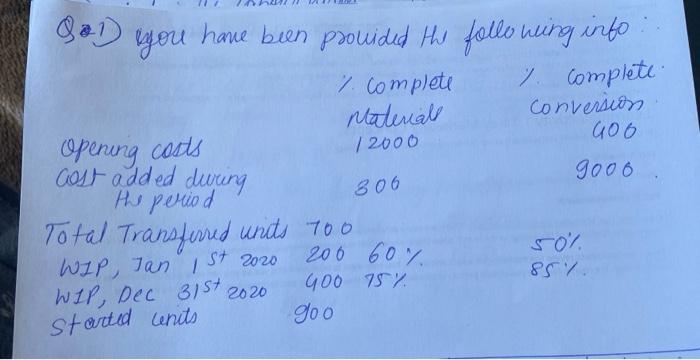 Q 1) you have been provided the following info :
% Complete % Complete
Materials Conversion
Opening costs 12000 400
Cost added during 300 9000
the period
Total Transferred units 700
WIP, Jan 1st 2020 200 60% 50%
WIP, Dec 31st 2020 400 75% 85%
Started units 900